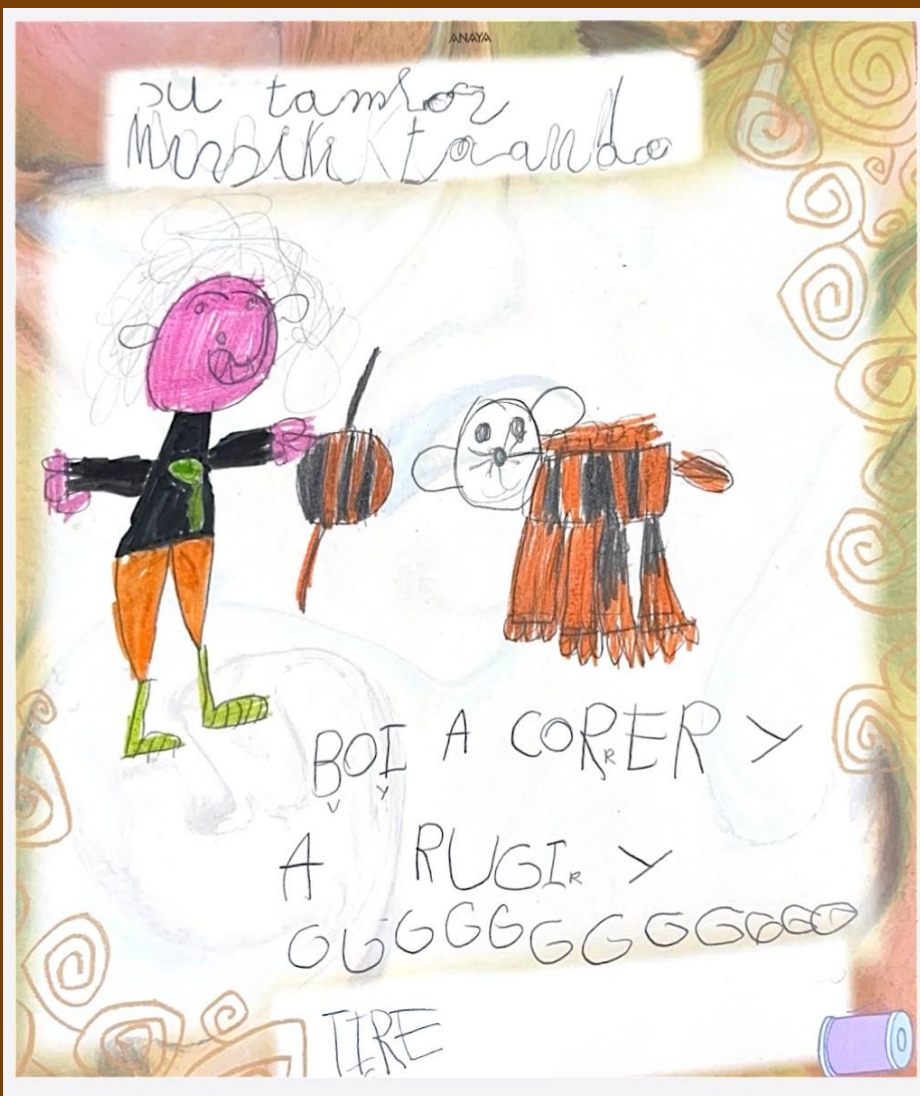 ANAYA
su tambor
tocando
BOI A CORRER Y
V Y
A RUGIR Y
GGGGGGGGGGGG
TIRE